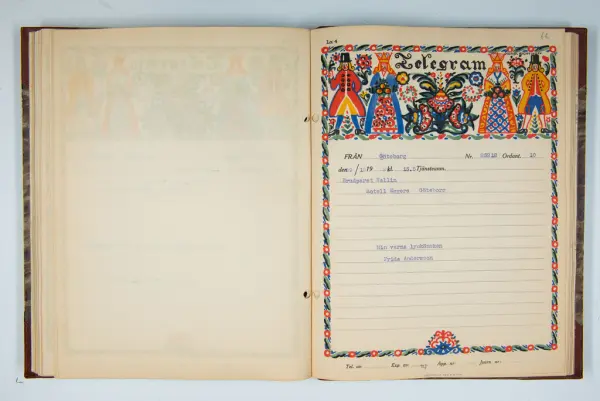 Lx 4
Telegram
FRÅN Göteborg Nr. Ordant. 10
den / 19 kl. Tjänsteanm.
Brudparet Wallin
Hotell Eggers Göteborg
Min varma lyckönskan
Frida Andersson
Tel. nr. Exp. nr. App. nr. Justn. nr.